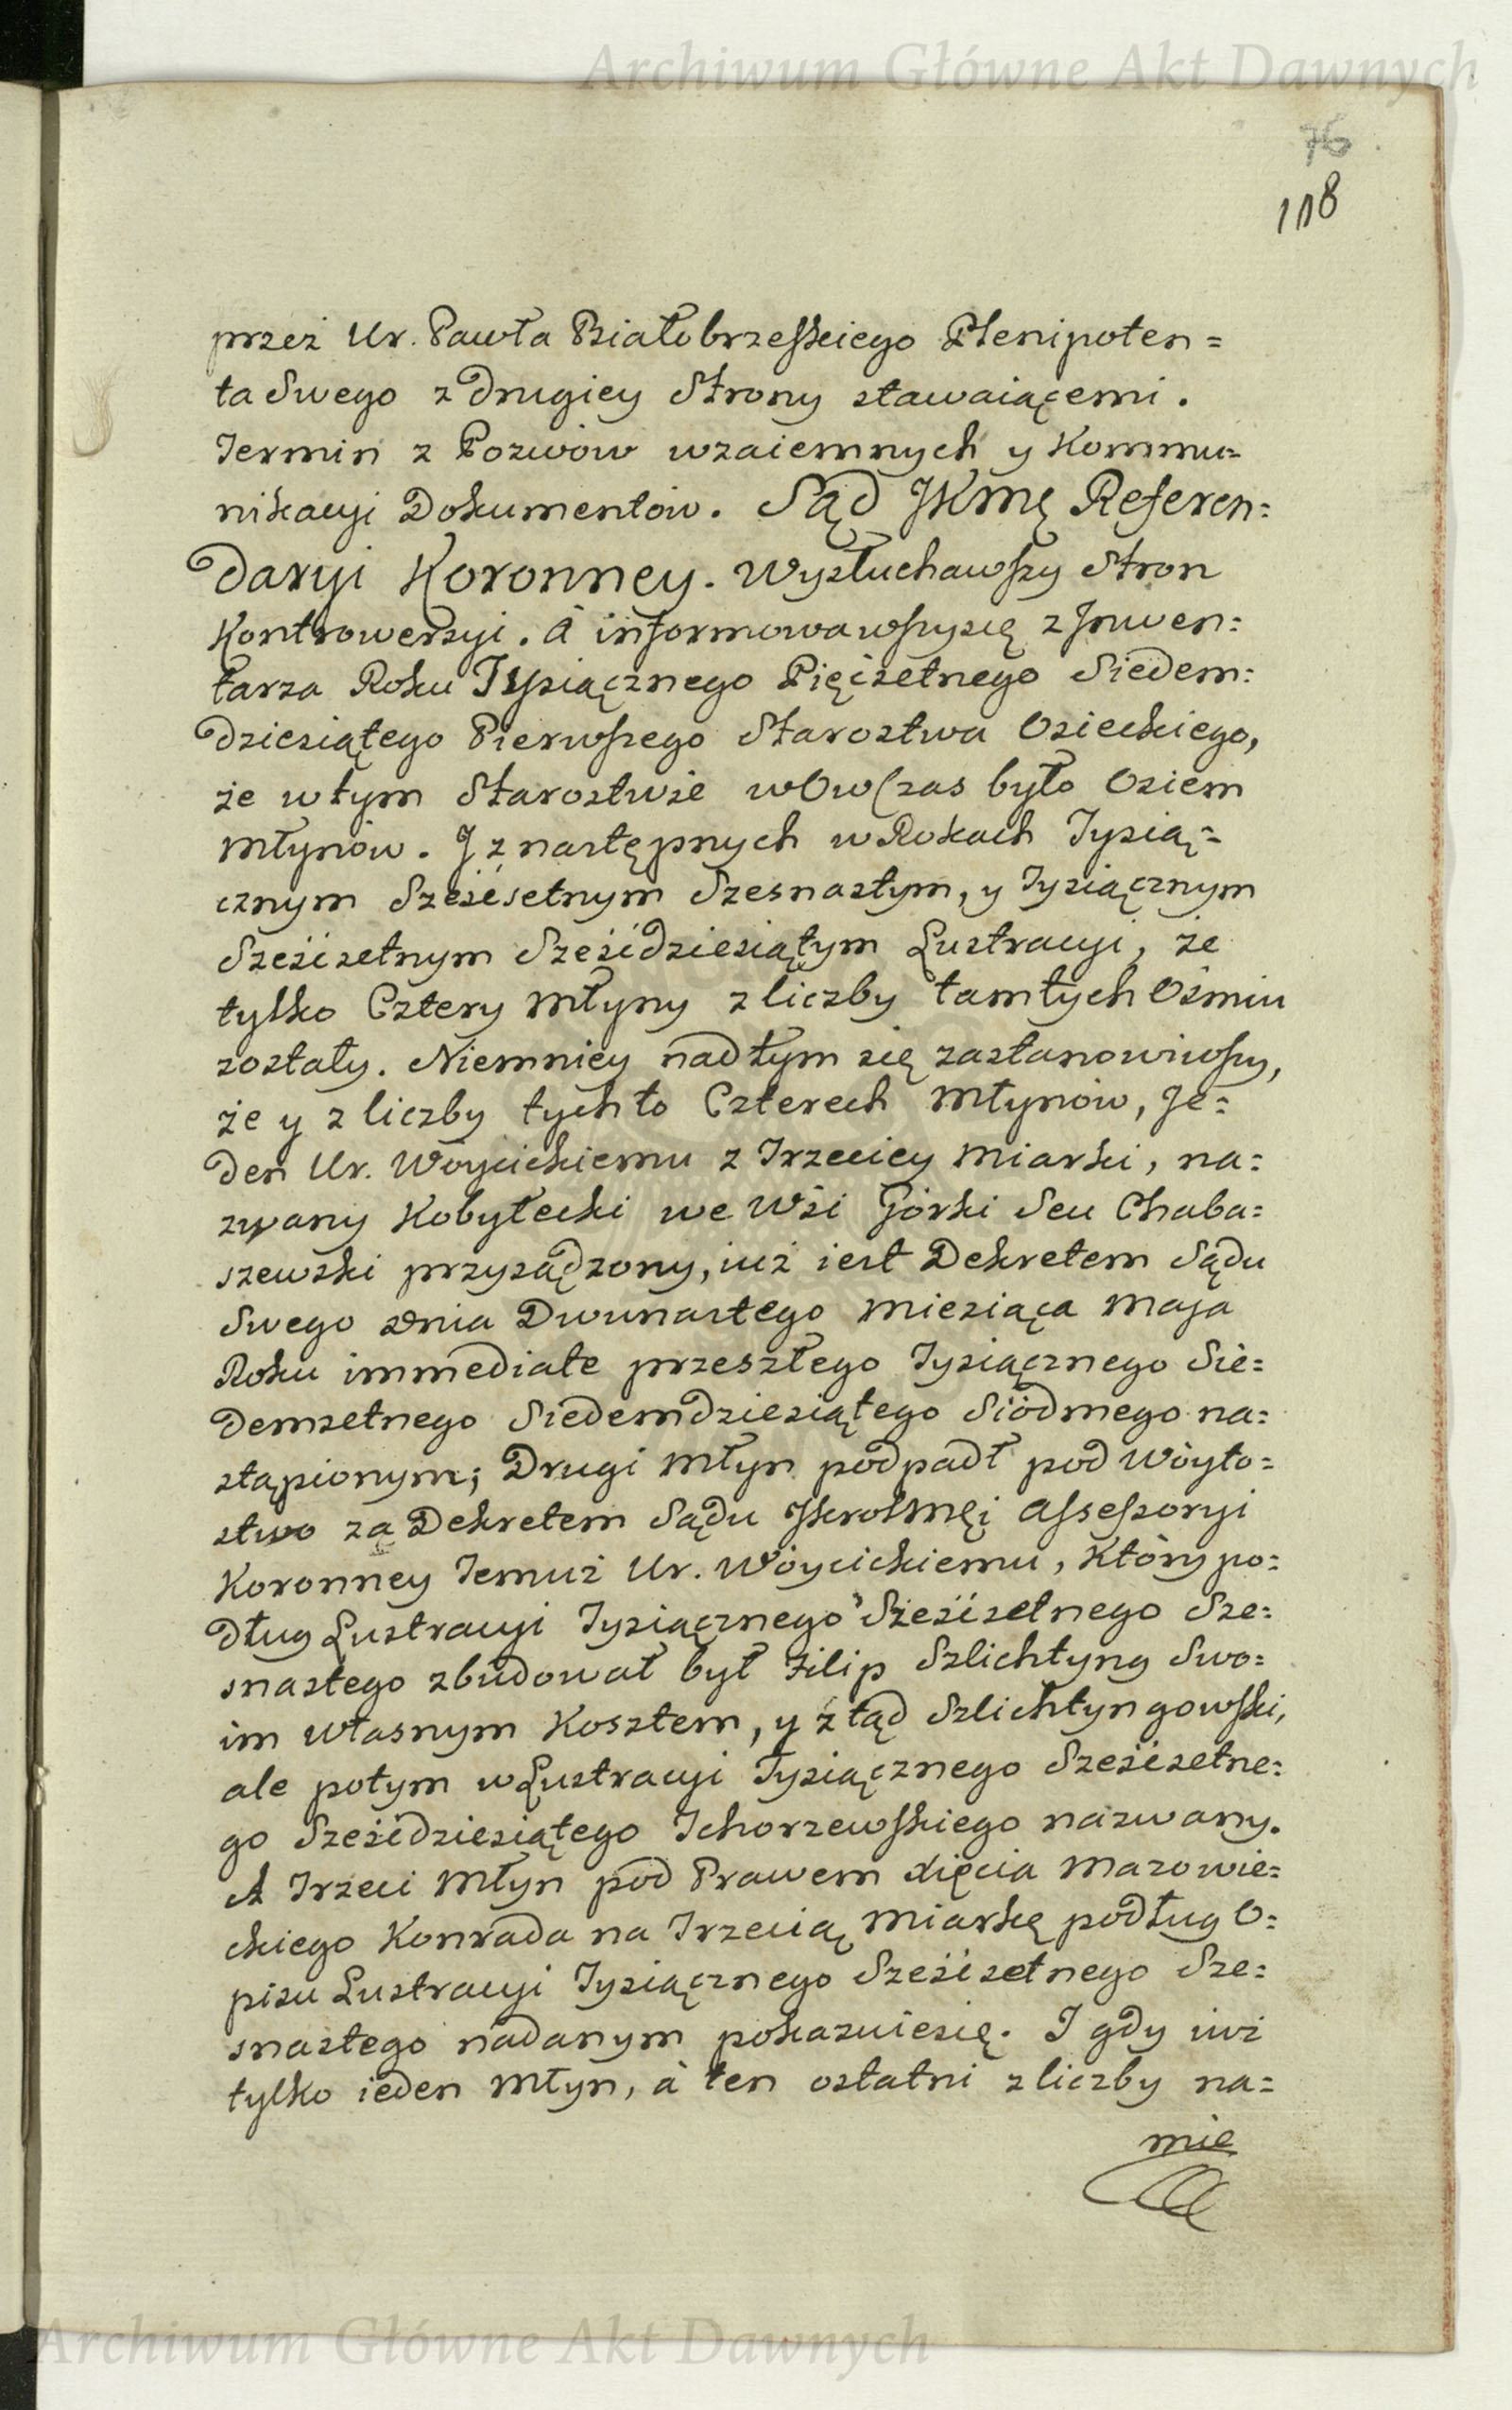 Archiwum Główne Akt Dawnych
76
118
przez Ur. Pawła Białobrzeskiego Plenipoten=
ta Swego z drugiey Strony stawaiącemi.
Termin z Pozwów wzaiemnych y Kommu=
nikacyi Dokumentów. Sąd JKMę Referen=
daryi Koronney. Wysłuchawszy Stron
Kontrowersyi. à informowawszysię z Jnwen=
tarza Roku Tysiącznego Pięćsetnego Siedem=
dziesiątego Pierwszego Starostwa Osieckiego,
że w tym Starostwie w Owczas było Osiem
Młynów. J z następnych w Rokach Tysią=
cznym Sześćsetnym Szesnastym, y Tysiącznym
Sześćsetnym Sześćdziesiątym Lustracyi, że
tylko Cztery Młyny z liczby tamtych Ośmiu
zostały. Niemniey nad tym się zastanowiwszy,
że y z liczby tych to Czterech Młynów, Je=
den Ur. Wóycickiemu z Trzeciey Miarki, na=
zwany Kobyłecki we Wsi Górki Seu Chaba=
szewski przysądzony, iuż iest Dekretem Sądu
Swego dnia Dwunastego Miesiąca Maja
Roku immediate przeszłego Tysiącznego Sie=
demsetnego Siedemdziesiątego Siódmego na=
stąpionym; Drugi Młyn podpadł pod Wóyto=
stwo za Dekretem Sądu JKrolMęi Assessoryi
Koronney Temuż Ur. Wóycickiemu, Który po=
dług Lustracyi Tysiącznego Sześćsetnego Sze=
snastego zbudował był Filip Szlichtyng Swo=
im własnym Kosztem, y ztąd Szlichtyngowski,
ale potym w Lustracyi Tysiącznego Sześćsetne=
go Sześćdziesiątego Tchorzewskiego nazwany.
A Trzeci Młyn pod Prawem Xięcia Mazowie=
ckiego Konrada na Trzecią Miarkę podług O=
pisu Lustracyi Tysiącznego Sześćsetnego Sze=
snastego nadanym pokazuiesię. I gdy iuż
tylko ieden Młyn, à ten ostatni z liczby na=
mie
Archiwum Główne Akt Dawnych